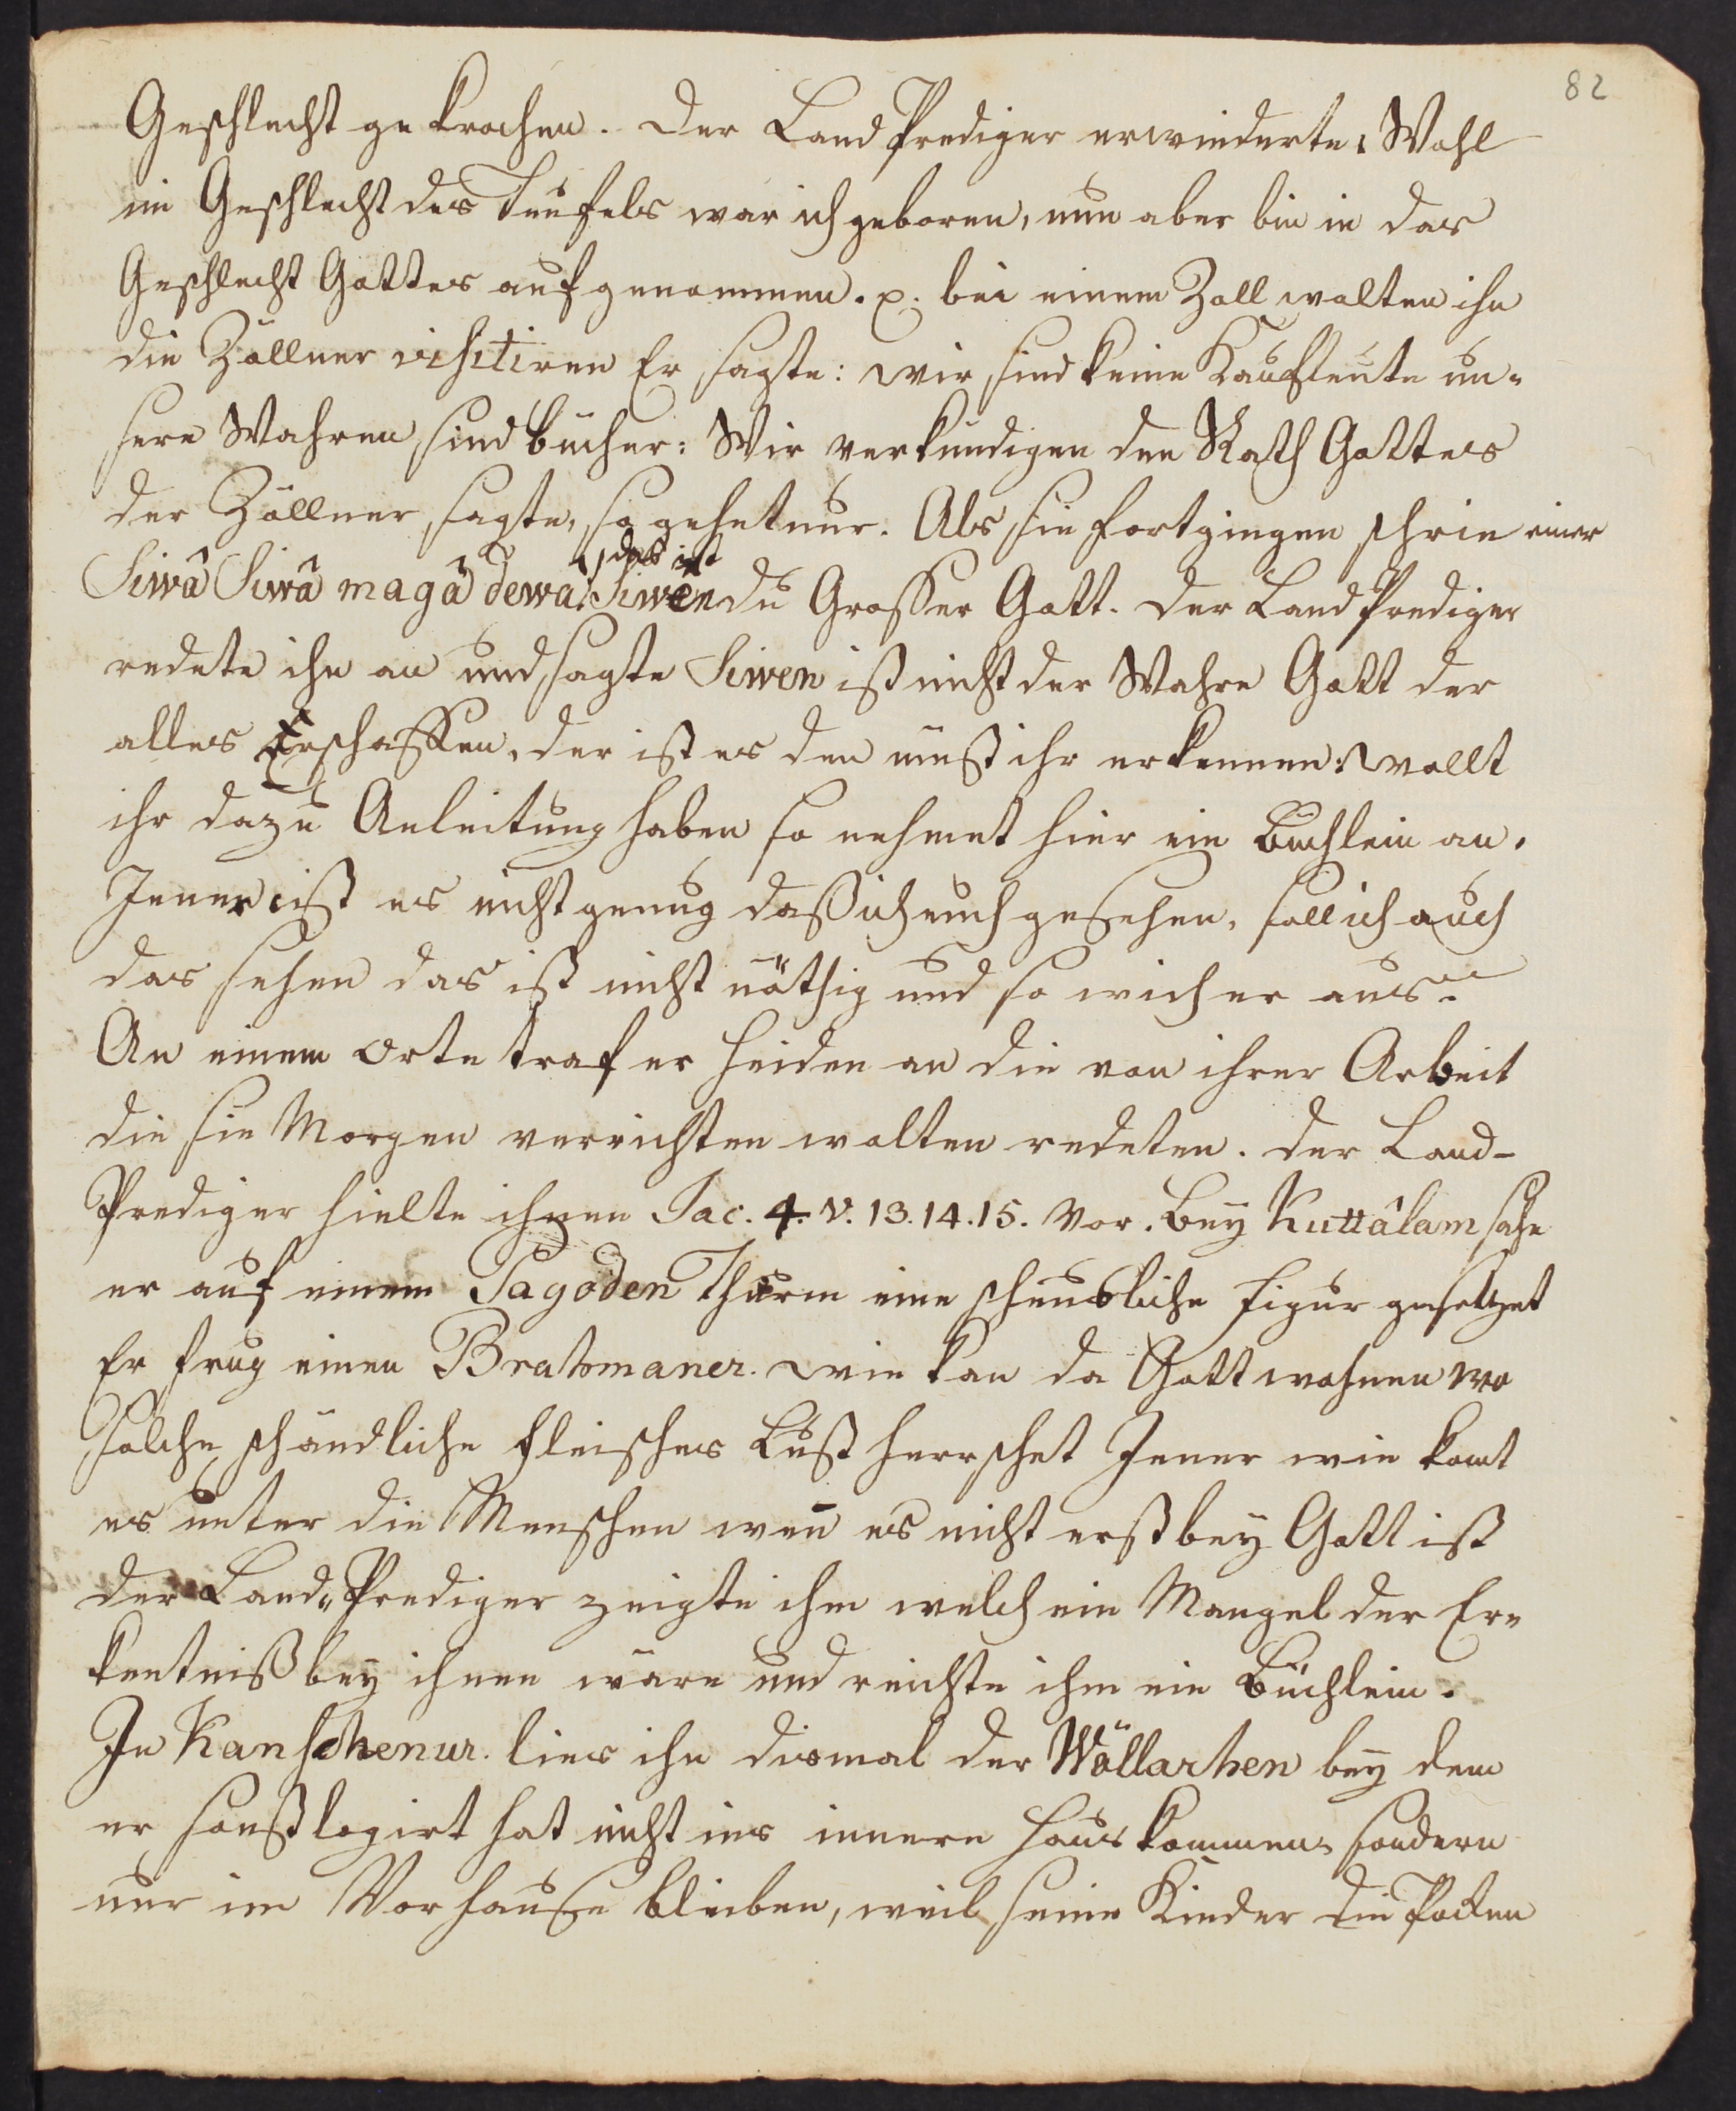 82
Geschlecht gekrochen. Der Land Prediger erwiederte. Wohl
im Geschlecht des Teufels war ich geboren, nun aber bin in das
Geschlecht Gottes aufgenommen. p. bei einem Zoll wolten ihn
die Zöllner visitiren Er sagte: wir sind keine Kaufleute un-
sere Wahren sind bücher: Wir verkündigen den Rath Gottes
der Zöllner sagte, so gehet nur. Als sie fortgingen schrie einer
das ist
Siwâ Siwâ magâ dewa, Siwen du Grosser Gott. Der Land Prediger
redete ihn an und sagte Siwen ist nicht der Wahre Gott der
alles Erschaffen, der ist es den müst ihr erkennen: wollt
ihr dazu Anleitung haben so nehmet hier ein Büchlein an.
Jener ist es nicht genug daß ich euch gesehen, soll ich auch
das sehen das ist nicht nöthig und so wich er aus.
An einem Orte traf er Heiden an die von ihrer Arbeit
die sie Morgen verrichten wolten redeten. Der Land-
Prediger hielte ihnen Jac. 4. v. 13. 14. 15. vor. Bey Kuttâlam sahe
er auf einem Pagoden Thurm eine scheusliche Figur gesetzet
Er frug einen Brahmaner. wie kan da Gott wohnen wo
solche schändliche Fleisches Lust herrschet Jener wie komt
es unter die Menschen wen es nicht erst bey Gott ist
der Land-Prediger zeigte ihm welch ein Mangel der Er-
kentniß bey ihnen wäre und reichte ihm ein Büchlein.
In Kanschenur. lies ihn dismal der Wöllarhen bey dem
er sonst logirt hat nicht ins innere Haus kommen, sondern
nur im Vorhause bleiben, weil seine Kinder die Pocken